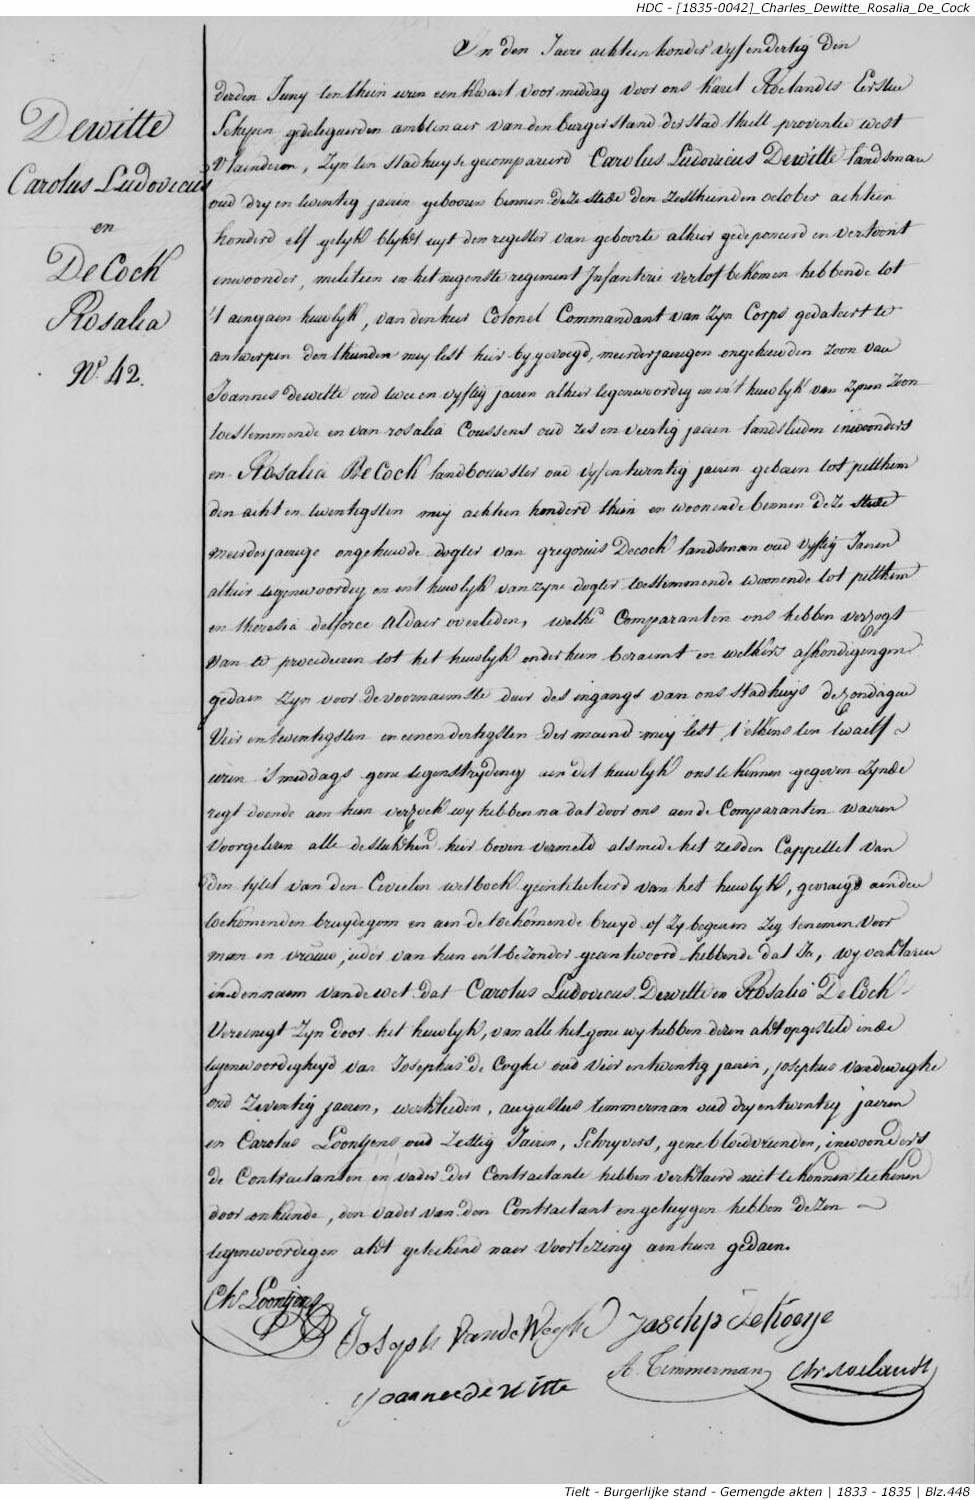 HDC - [1835-0042]_Charles_Dewitte_Rosalia_De_Cock
Dewitte
Carolus Ludovicus
en
De Cock
Rosalia
N.º 42.
In den Jaere achtien honder vyf en dertig den
derden Juny ten thien uren een kwart voor middag voor ons Karel Roelandts Eersten
Schepen gedelegeerden amblenaer van den burgerstand der stad thielt provencie west
Vlaenderen, zyn ten stadhuyse gecompareerd Carolus Ludovicus Dewitte landsman
oud dry en twentig jaeren geboren binnen deze stede den zesthienden october achtien
honderd elf gelyk blykt uyt den register van geboorte alhier gedeponeerd en vertoont
inwoonder, militien in het negenste regiment Infanterie verlof bekomen hebbende tot
't aengaen huwlyk, van den heer Colonel Commandant van zyn Corps gedateert te
antwerpen den thienden mey lest hier by gevoegd, meerderjaerigen ongehuwden zoon van
Joannes dewitte oud twee en vyftig jaeren alhier tegenwoordig en in 't huwlyk van zynen zoon
toestemmende en van rosalia Coussens oud zes en veertig jaeren landslieden inwoonders
en Rosalia De Cock landbouwster oud vyf en twentig jaeren geboren tot pitthem
den acht en twentigsten mey achtien honderd thien en woonende binnen deze stede
meerderjaerige ongehuwde dogter van gregorius Decock landsman oud vyftig Jaeren
alhier tegenwoordig en in 't huwlyk van zyne dogter toestemmende woonende tot pitthem
en theresia delforce aldaer overleden, welke Comparanten ons hebben verzogt
van te procederen tot het huwlyk onder hun beraemt en welkers afkondigingen
gedaen zyn voor de voornaemste deur des ingangs van ons stadhuys de zondagen
Vier en twintigsten en eenendertigsten der maend mey lest, t'elkens ten twaelf
uren 's middags geene tegenstrydeny aen dit huwlyk ons te kennen gegeven zynde
regt doende aen hun verzoek wy hebben na dat door ons aen de Comparanten waeren
voorgelezen alle de stukken hier boven vermeld alsmede het zesden Cappittel van
den tytel van den Civielen wetboek geintituleerd van het huwlyk, gevraegd aen den
toekomenden bruydegom en aen de toekomende bruyd of zy begeeren zeg te nemen voor
man en vrouw, ieder van hun in 't bezonder geantwoord hebbende dat Ja, wy verklaren
in den naem van de wet dat Carolus Ludovicus Dewitte en Rosalia De Cock
Vereenigt zyn door het huwlyk, van alle het gone wy hebben dezen akt opgesteld in de
tegenwoordigheyd van Josephus de Coghe oud vier en twentig jaeren, josephus vandeweghe
oud Zeventig jaeren, werklieden, augustus temmerman oud dry en twentig jaeren
en Carolus Loontjens oud Zestig Jaeren, Schryvers, gene bloedvrienden, inwoonders
de Contractanten en vader der Contractante hebben verklaerd niet te konnen teekenen
door onkunde, den vader van den Contractant en getuygen hebben dezen
tegenwoordigen akt geteekend naer voorlezing aen hun gedaen.
Chs Loontjens
Joseph VandeWeghe
Joannes de witte
A. Timmerman
Chs Roelandt
Tielt - Burgerlijke stand - Gemengde akten | 1833 - 1835 | Blz.448